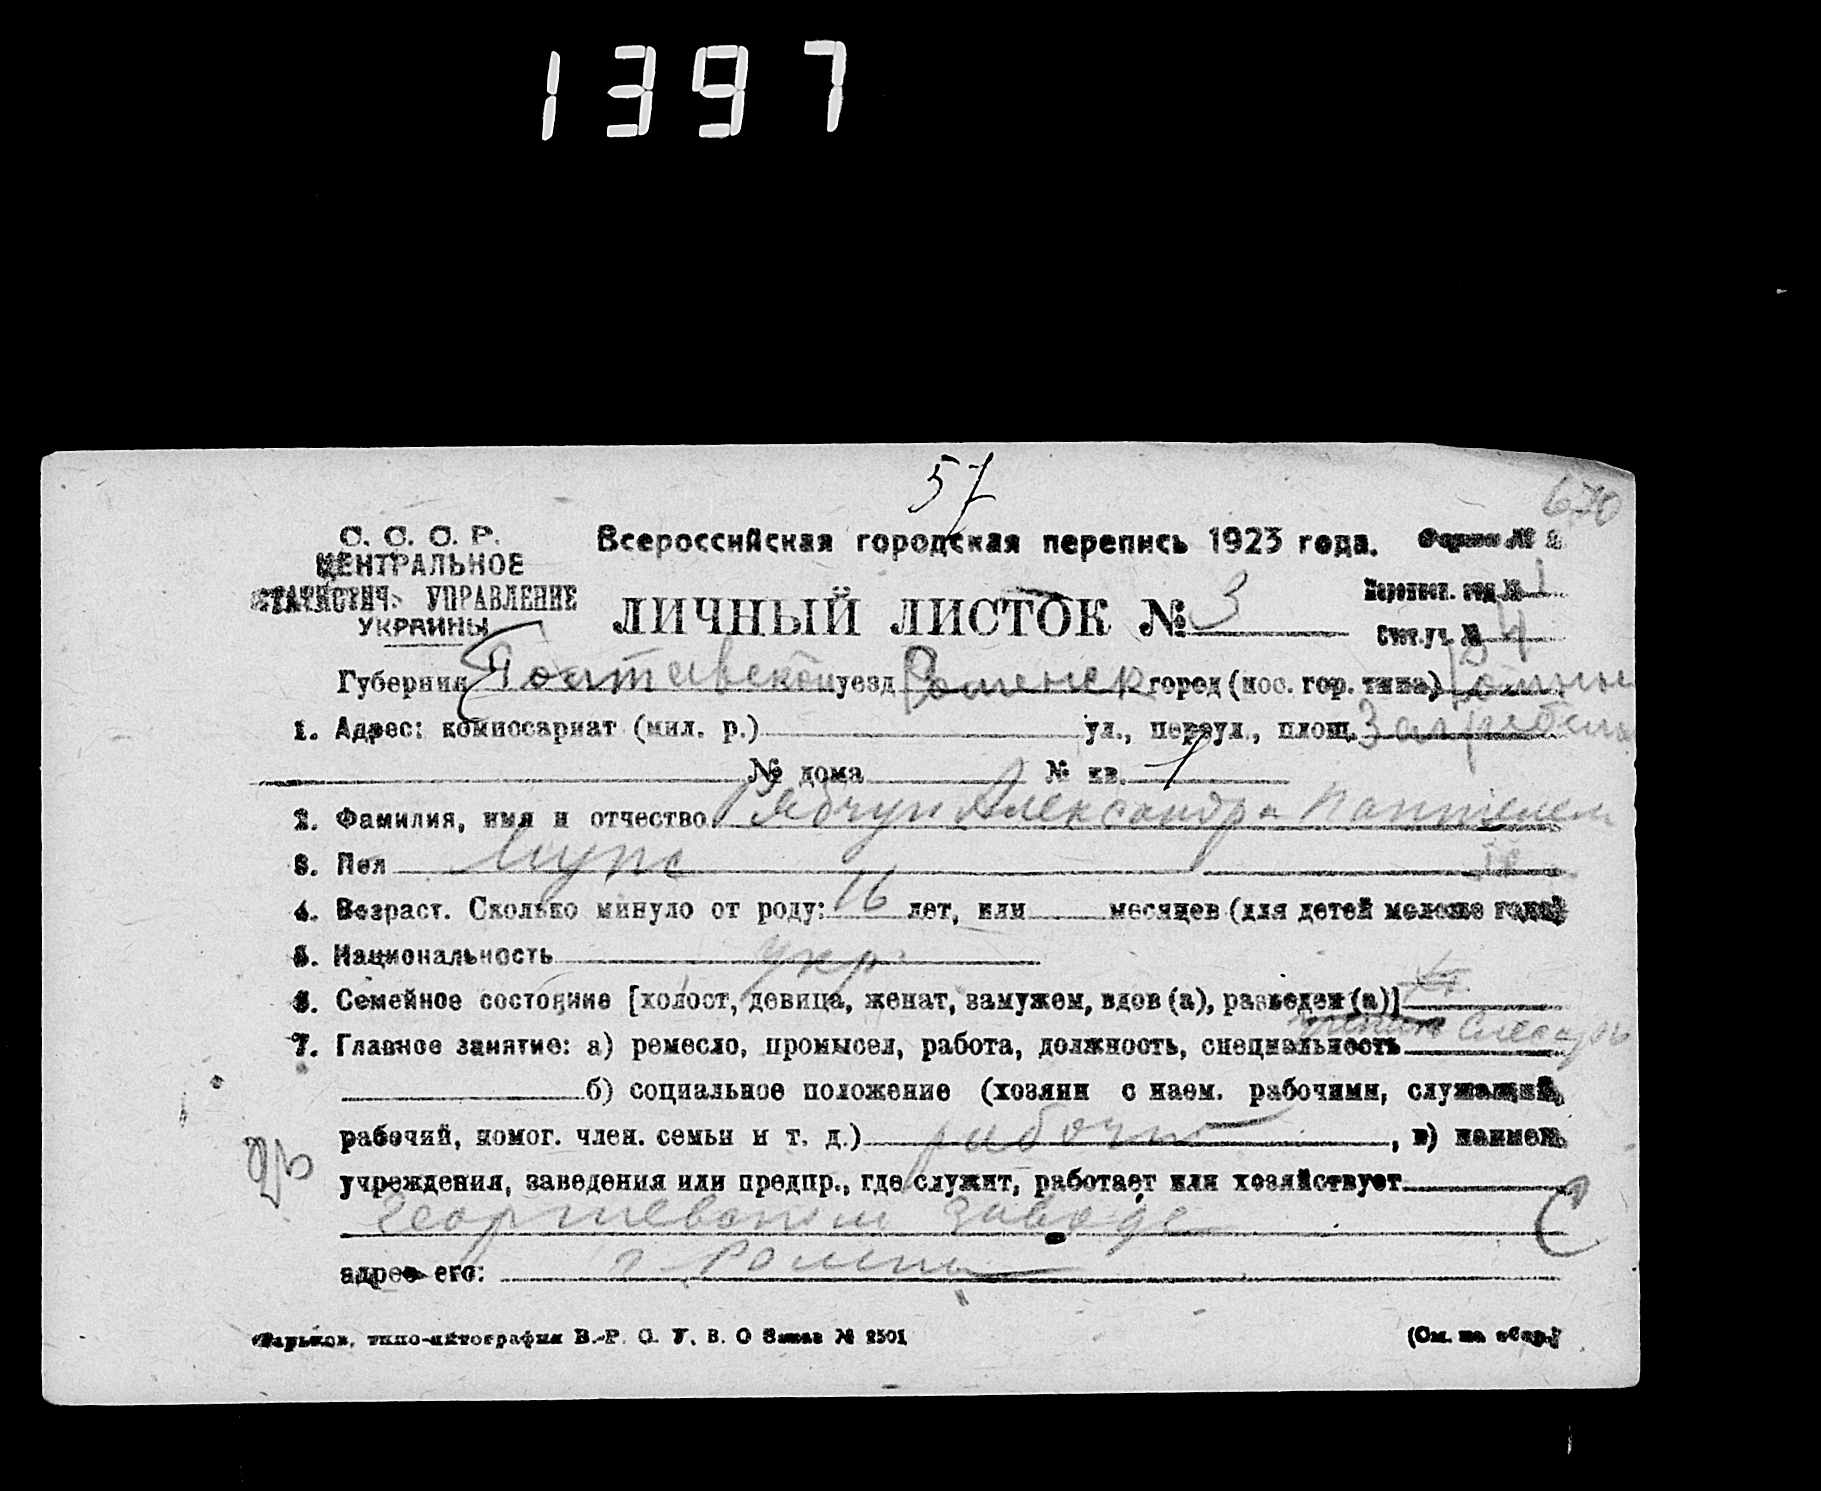 1397
57
670
С. С. С. Р. Всероссийская городская перепись 1923 года. Форма № 2
ЦЕНТРАЛЬНОЕ
СТАТИСТИЧ. УПРАВЛЕНИЕ
УКРАИНЫ
ЛИЧНЫЙ ЛИСТОК № 3
Переписн. отд. № 1
Счет. уч. № 4
Губерния Полтавской уезд Роменск город (пос. гор. типа) Ромны
1. Адрес: комиссариат (мил. р.) ул., переул., площ.
№ дома № кв. 1
2. Фамилия, имя и отчество Рябчун Александра Пантелеем
3. Пол Мужс
4. Возраст. Сколько минуло от роду: 16 лет, или месяцев (для детей моложе года)
5. Национальность укр.
6. Семейное состояние [холост, девица, женат, замужем, вдов (а), разведен (а)]
7. Главное занятие: а) ремесло, промысел, работа, должность, специальность Слесарь
б) социальное положение (хозяин с наем. рабочими, служащий,
рабочий, помог. член. семьи и т. д.) рабочий, в) наимен.
учреждения, заведения или предпр., где служит, работает или хозяйствует
заводе
адрес его: г. Ромны
Харьков, типо-литография В.-Р. С. У. В. О Заказ № 2501 (См. на обор.)